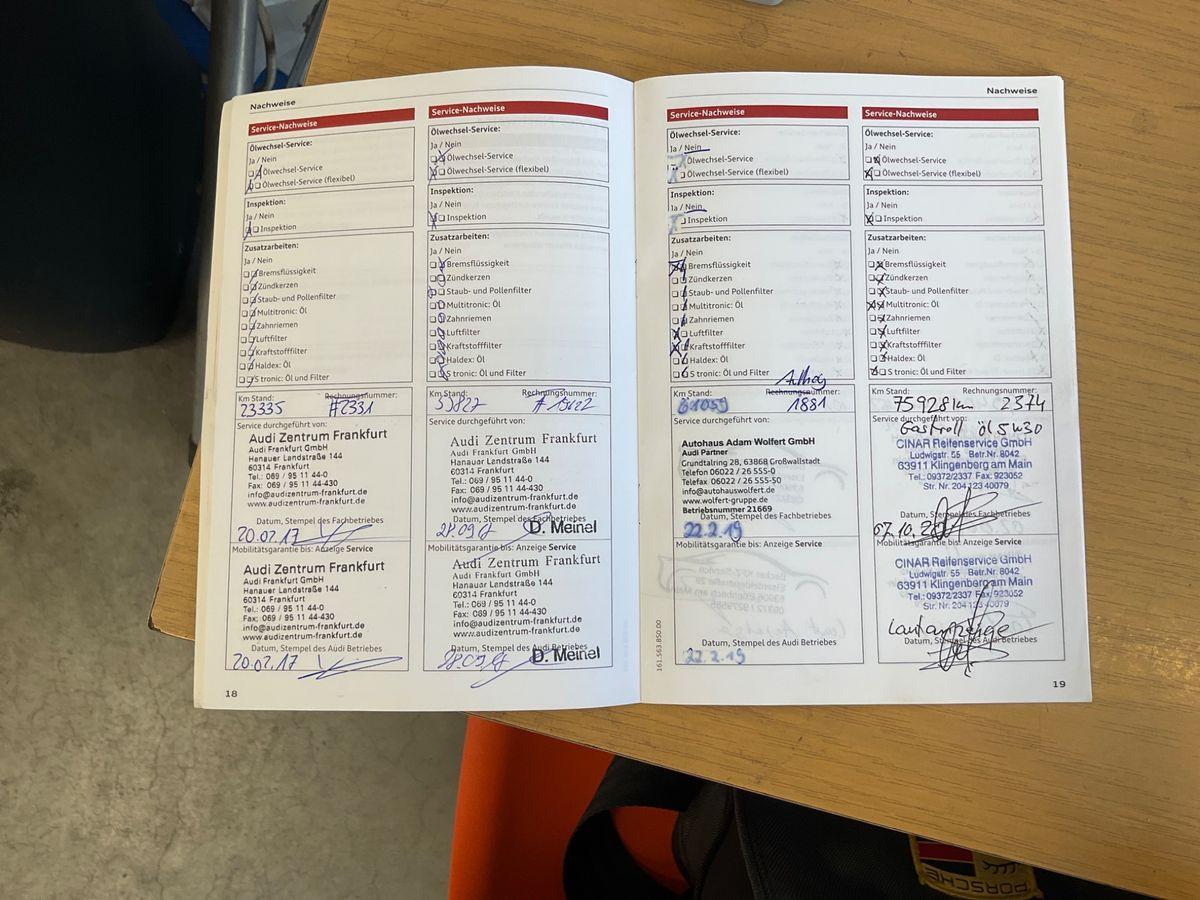 Nachweise
Service-Nachweise
Ölwechsel-Service:
Ja / Nein
Ölwechsel-Service
Ölwechsel-Service (flexibel)
Inspektion:
Ja / Nein
Inspektion
Zusatzarbeiten:
Ja / Nein
Bremsflüssigkeit
Zündkerzen
Staub- und Pollenfilter
Multitronic: Öl
Zahnriemen
Luftfilter
Kraftstofffilter
Haldex: Öl
S tronic: Öl und Filter
Km Stand: Rechnungsnummer:
23335 #2331
Service durchgeführt von:
Audi Zentrum Frankfurt
Audi Frankfurt GmbH
Hanauer Landstraße 144
60314 Frankfurt
Tel.: 069 / 95 11 44-0
Fax: 069 / 95 11 44-430
info@audizentrum-frankfurt.de
www.audizentrum-frankfurt.de
Datum, Stempel des Fachbetriebes
20.02.17
Mobilitätsgarantie bis: Anzeige Service
Audi Zentrum Frankfurt
Audi Frankfurt GmbH
Hanauer Landstraße 144
60314 Frankfurt
Tel.: 069 / 95 11 44-0
Fax: 069 / 95 11 44-430
info@audizentrum-frankfurt.de
www.audizentrum-frankfurt.de
Datum, Stempel des Audi Betriebes
20.02.17
18
Service-Nachweise
Ölwechsel-Service:
Ja / Nein
Ölwechsel-Service
Ölwechsel-Service (flexibel)
Inspektion:
Ja / Nein
Inspektion
Zusatzarbeiten:
Ja / Nein
Bremsflüssigkeit
Zündkerzen
Staub- und Pollenfilter
Multitronic: Öl
Zahnriemen
Luftfilter
Kraftstofffilter
Haldex: Öl
S tronic: Öl und Filter
Km Stand: Rechnungsnummer:
Service durchgeführt von:
Audi Zentrum Frankfurt
Audi Frankfurt GmbH
Hanauer Landstraße 144
60314 Frankfurt
Tel.: 069 / 95 11 44-0
Fax: 069 / 95 11 44-430
info@audizentrum-frankfurt.de
www.audizentrum-frankfurt.de
Datum, Stempel des Fachbetriebes
D. Meinel
Mobilitätsgarantie bis: Anzeige Service
Audi Zentrum Frankfurt
Audi Frankfurt GmbH
Hanauer Landstraße 144
60314 Frankfurt
Tel.: 069 / 95 11 44-0
Fax: 069 / 95 11 44-430
info@audizentrum-frankfurt.de
www.audizentrum-frankfurt.de
Datum, Stempel des Audi Betriebes
D. Meinel
Service-Nachweise
Ölwechsel-Service:
Ja / Nein
Ölwechsel-Service
Ölwechsel-Service (flexibel)
Inspektion:
Ja / Nein
Inspektion
Zusatzarbeiten:
Ja / Nein
Bremsflüssigkeit
Zündkerzen
Staub- und Pollenfilter
Multitronic: Öl
Zahnriemen
Luftfilter
Kraftstofffilter
Haldex: Öl
S tronic: Öl und Filter
Km Stand: Rechnungsnummer:
61059 1881
Service durchgeführt von:
Autohaus Adam Wolfert GmbH
Audi Partner
Grundtalring 28, 63868 Großwallstadt
Telefon 06022 / 26 555-0
Telefax 06022 / 26 555-50
info@autohauswolfert.de
www.wolfert-gruppe.de
Betriebsnummer 21669
Datum, Stempel des Fachbetriebes
22.2.19
Mobilitätsgarantie bis: Anzeige Service
Datum, Stempel des Audi Betriebes
22.2.19
161.563.850.00
Nachweise
Service-Nachweise
Ölwechsel-Service:
Ja / Nein
Ölwechsel-Service
Ölwechsel-Service (flexibel)
Inspektion:
Ja / Nein
Inspektion
Zusatzarbeiten:
Ja / Nein
Bremsflüssigkeit
Zündkerzen
Staub- und Pollenfilter
Multitronic: Öl
Zahnriemen
Luftfilter
Kraftstofffilter
Haldex: Öl
S tronic: Öl und Filter
Km Stand: Rechnungsnummer:
75928 km 2374
Service durchgeführt von:
Gastroll öl 5w30
CINAR Reifenservice GmbH
Ludwigstr. 55 Betr.Nr. 8042
63911 Klingenberg am Main
Tel.: 09372/2337 Fax: 923052
Str. Nr. 204 123 40079
Datum, Stempel des Fachbetriebes
07.10.
Mobilitätsgarantie bis: Anzeige Service
CINAR Reifenservice GmbH
Ludwigstr. 55 Betr.Nr. 8042
63911 Klingenberg am Main
Tel.: 09372/2337 Fax: 923052
Str. Nr. 204 123 40079
Laut anzeige
Datum, Stempel des Audi Betriebes
19
PORSCHE